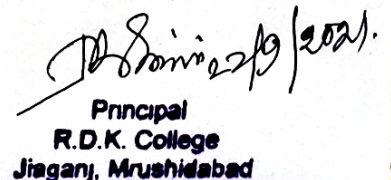 22/9/2021.
Principal
R.D.K. College
Jiaganj, Mrushidabad